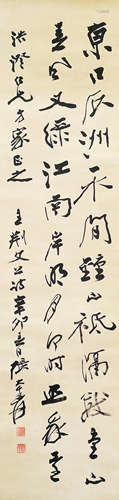 京口瓜洲一水間鍾山祇隔數重山
春風又綠江南岸明月何時照我還
王荊文公詩辛卯 張大千爰
洪澄仁兄方家正之